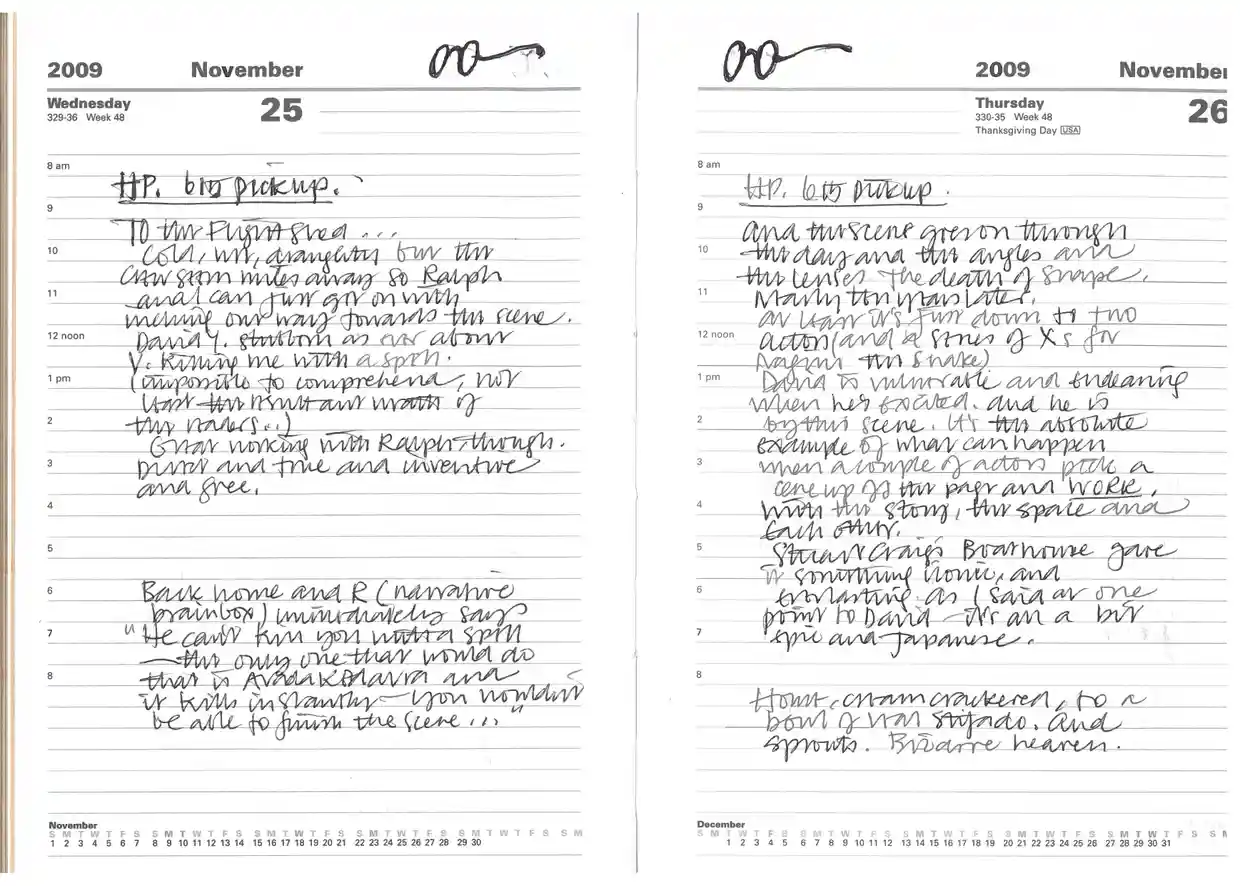 2009 November
Wednesday 25
329-36 Week 48
8 am
HP. 6.15 pick up.
9
To the Flight Shed ...
10
Cold, wet, draughty but the
crew seem miles away so Ralph
11
and I can just get on with
inching our way towards the scene.
12 noon
David Y. stubborn as ever about
V. killing me with a spell.
1 pm
(impossible to comprehend, not
least the resultant wrath of
2
the readers...)
Great working with Ralph, though.
3
Direct and true and inventive
and free.
4
5
6
Back home and R (narrative
brainbox) immediately says
7
"He can't kill you with a spell
– the only one that would do
8
that is Avada Kedavra and
it kills instantly – you wouldn't
be able to finish the scene ..."
November
S M T W T F S S M T W T F S S M T W T F S S M T W T F S S M T W T F S S M
1 2 3 4 5 6 7 8 9 10 11 12 13 14 15 16 17 18 19 20 21 22 23 24 25 26 27 28 29 30
2009 November
Thursday 26
330-35 Week 48
Thanksgiving Day USA
8 am
HP. 6.15 pick up.
9
And the scene goes on through
10
the day and the angles and
the lenses. The death of Snape.
11
Nearly ten years later.
At least it's just down to two
12 noon
actors (and a series of Xs for
Nagini the Snake)
1 pm
David is vulnerable and endearing
when he's excited. And he is
2
by this scene. It's the absolute
example of what can happen
3
when a couple of actors pick a
scene up off the page and WORK.
4
With the story, the space and
each other.
5
Stuart Craig's Boathouse gave
it something ironic, and
6
everlasting. As I said at one
point to David – it's all a bit
7
epic and Japanese.
8
Home, cream crackered, to a
bowl of veal stifado. And
sprouts. Bizarre heaven.
December
S M T W T F S S M T W T F S S M T W T F S S M T W T F S S M T W T F S S M
1 2 3 4 5 6 7 8 9 10 11 12 13 14 15 16 17 18 19 20 21 22 23 24 25 26 27 28 29 30 31